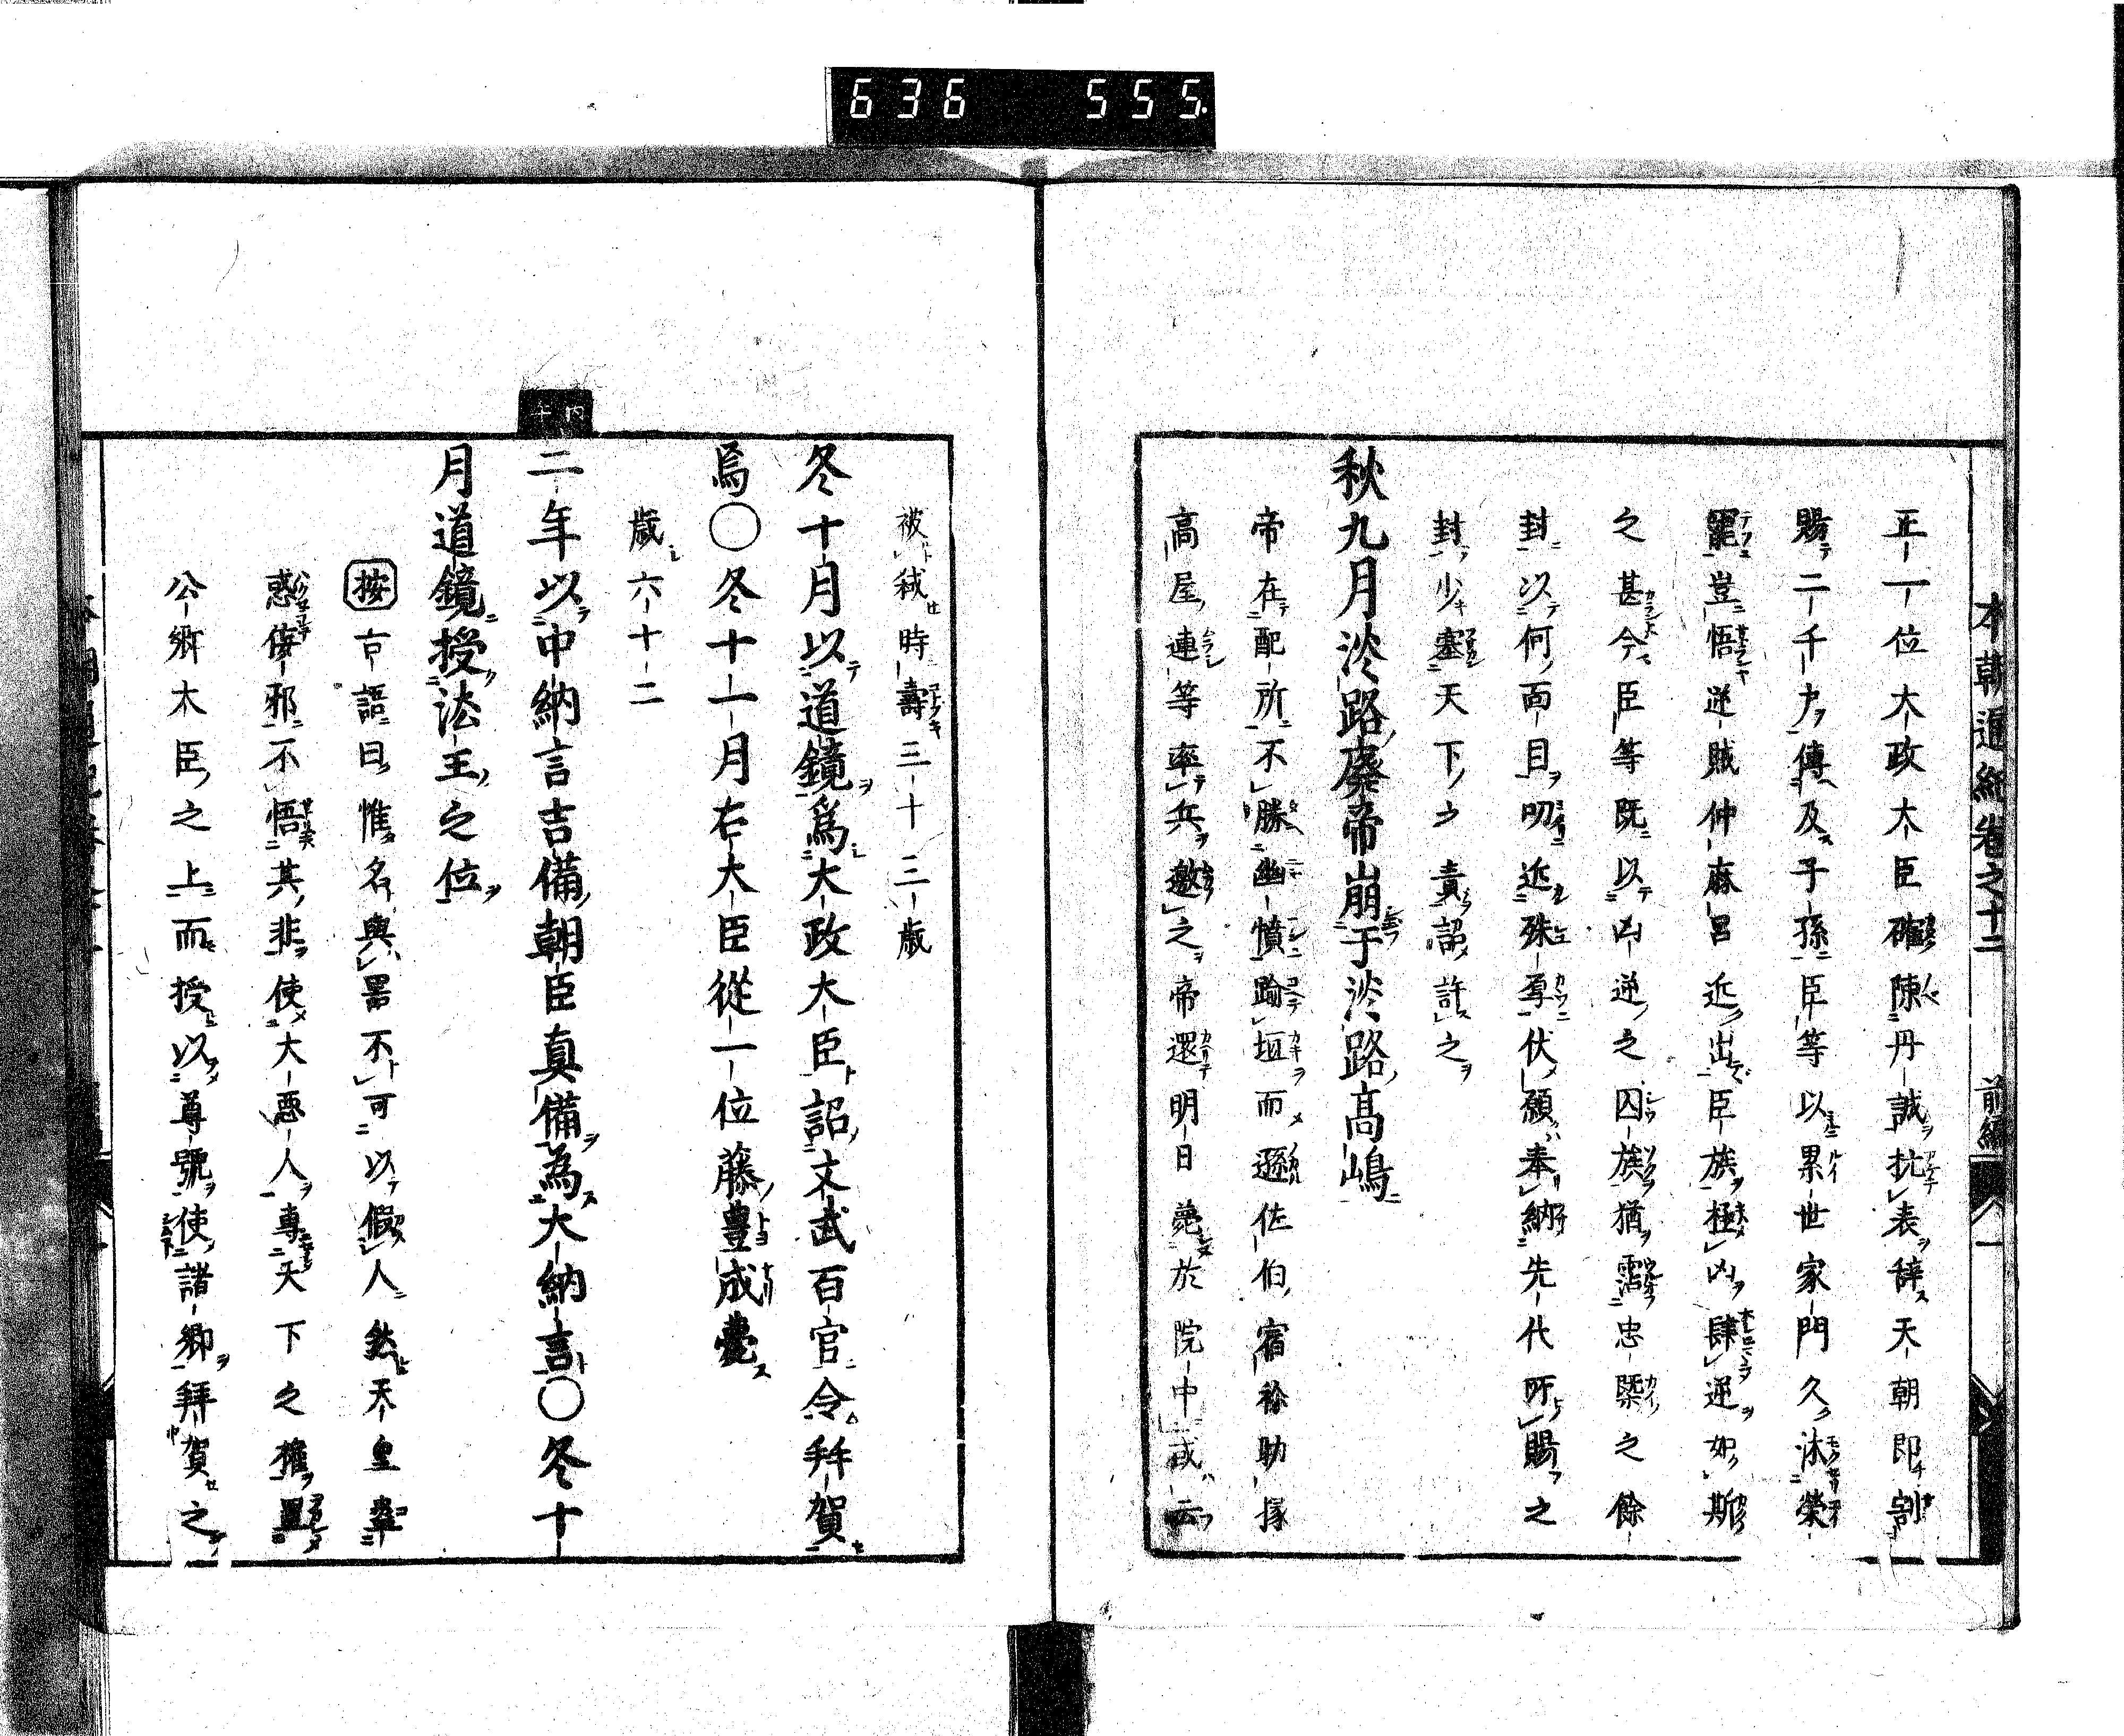 636 555.
本朝通紀卷之十二 前編 八 一
正一位大政大臣確陳丹誠抗表辞天朝即割
賜二千戸傳及子孫臣等以累世家門久沐榮
寵豈悟逆賊仲麻呂近出臣族極凶肆逆如斯
之甚今臣等既以凶逆之囚族猶霑忠槩之餘
封以何面目叨近殊辜伏願奉納先代所賜之
封少塞天下之責詔許之
秋九月淡路廢帝崩于淡路高嶋
帝在配所不勝幽憤踰垣而遯佐伯宿祢助掾
高屋連等率兵邀之帝還明日薨於院中或云
被弑時壽三十三歳
冬十月以道鏡爲大政大臣詔文武百官令拜賀
焉〇冬十一月右大臣從一位藤豊成薨
歳六十二
丙午
二年以中納言吉備朝臣真備為大納言〇冬十
月道鏡授法王之位
按古語曰惟名與噐不可以假人然天皇
惑倖邪不悟其非使大惡人專天下之權置
公卿大臣之上而授以尊號使諸卿拜賀之